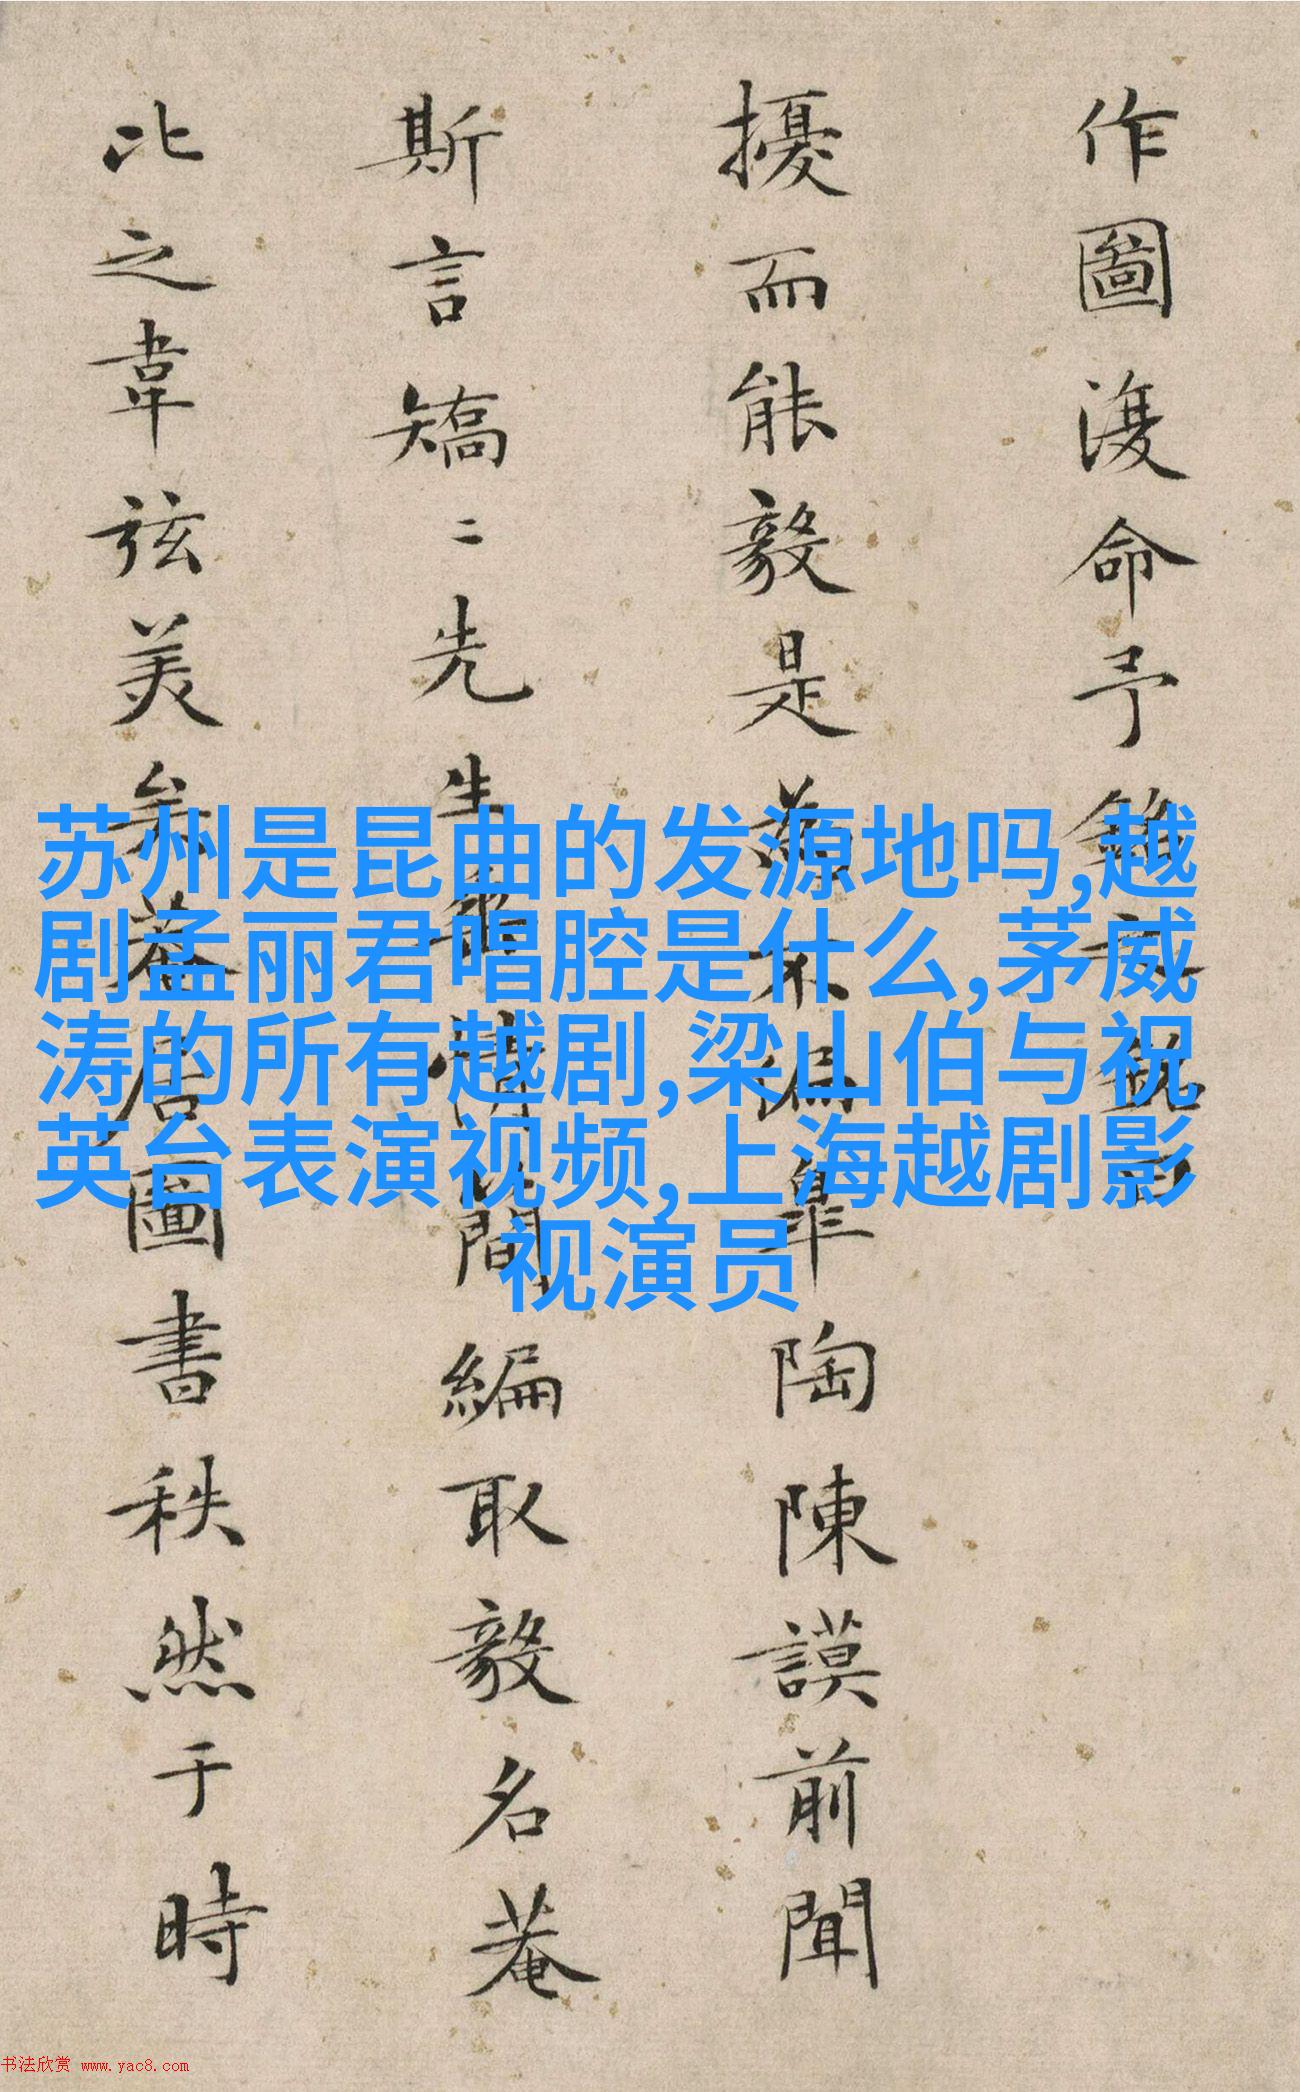 作圖復命予
擾而能毅是為不偏皋陶陳謨前聞
斯言矯二先生情簡編取毅名菴
比之韋弦美矣菴居圖書秩然于時
苏州是昆曲的发源地吗,越
剧孟丽君唱腔是什么,茅威
涛的所有越剧,梁山伯与祝
英台表演视频,上海越剧影
视演员
书法欣赏 www.yac8.com